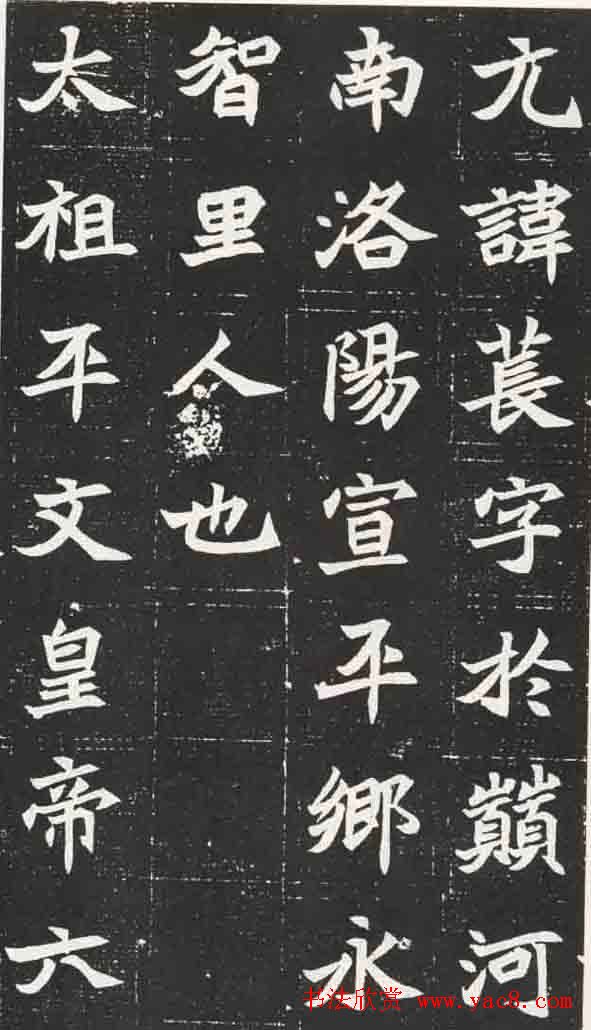 元諱萇字於巔河
南洛陽宣平鄉永
智里人也
太祖平文皇帝六
书法欣赏 www.yac8.com